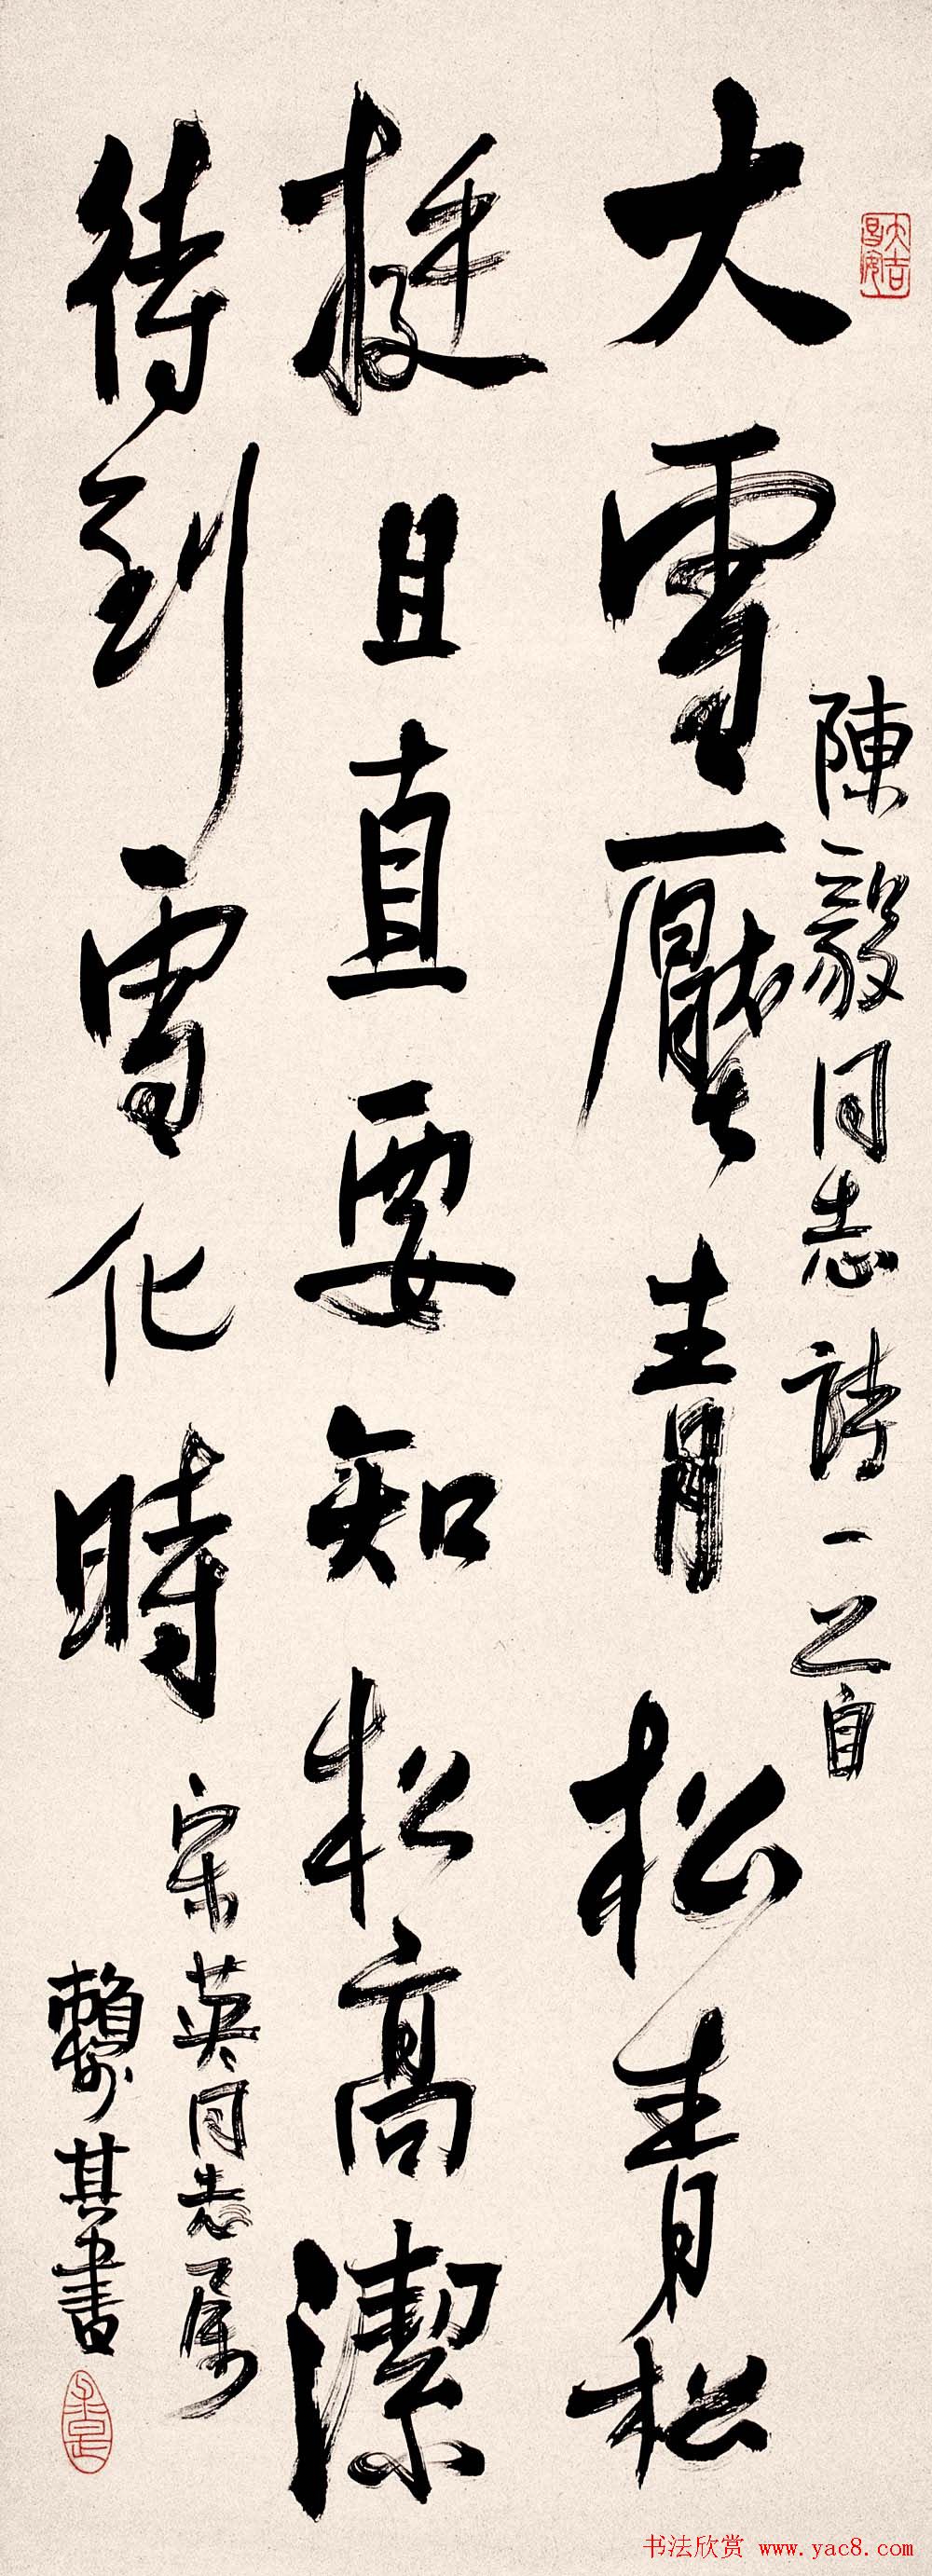 陳毅同志詩一首
大雪壓青松青松
挺且直要知松高潔
待到雪化時
宋英同志属
賴少其書
书法欣赏 www.yac8.com